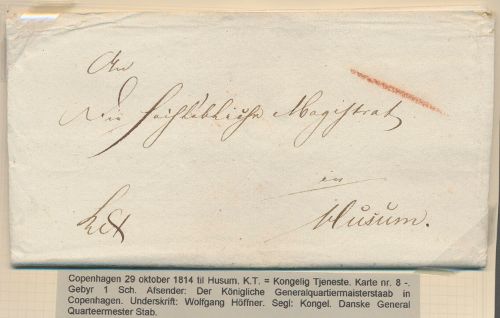 An
Die Hochlöbliche Magistrat
in
Husum.
Copenhagen 29 oktober 1814 til Husum. K.T. = Kongelig Tjeneste. Karte nr. 8 -.
Gebyr 1 Sch. Afsender: Der Königliche Generalquartiermaisterstaab in
Copenhagen. Underskrift: Wolfgang Höffner. Segl: Kongel. Danske General
Quarteermester Stab.